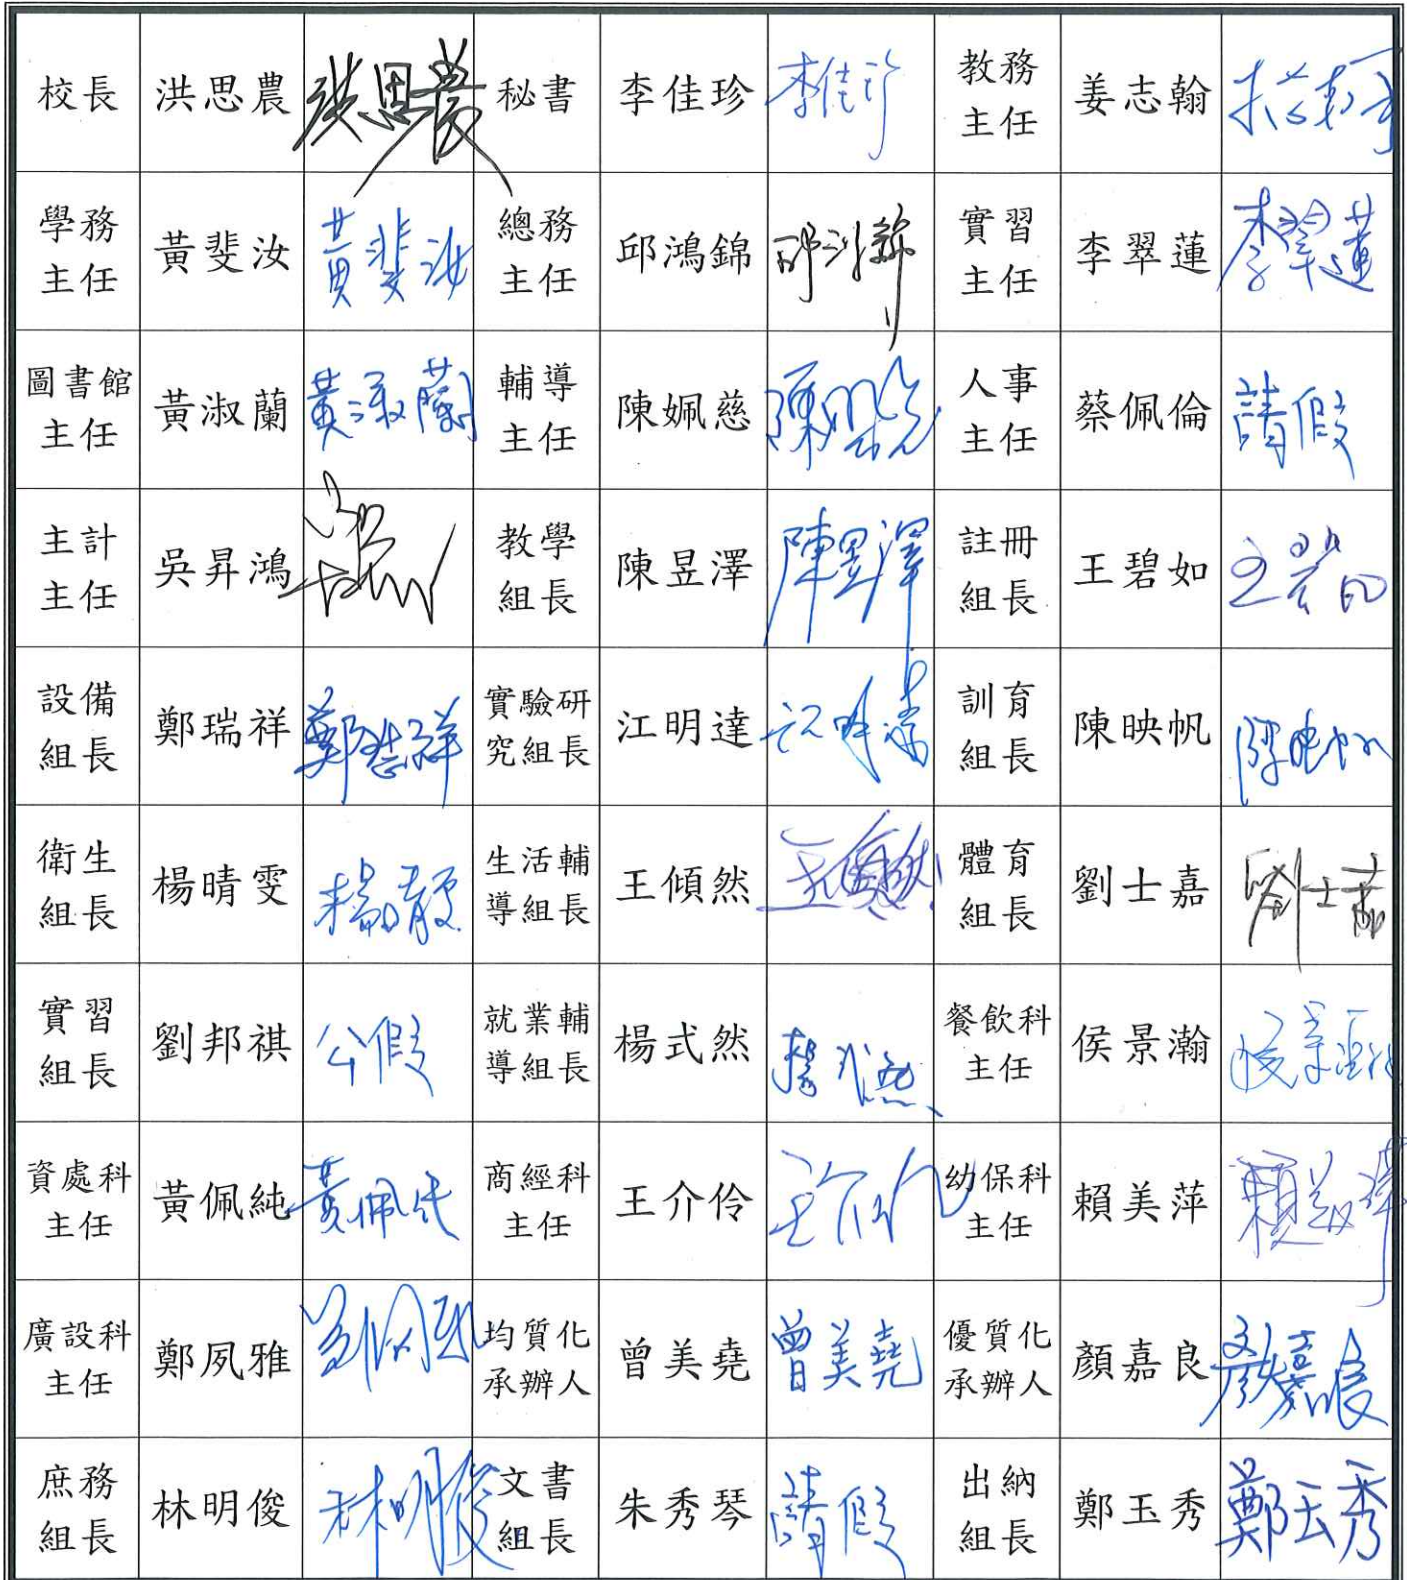 校長 洪思農 洪思農 秘書 李佳珍 李佳珍 教務主任 姜志翰
學務主任 黃斐汶 黃斐汶 總務主任 邱鴻錦 實習主任 李翠蓮 李翠蓮
圖書館主任 黃淑蘭 黃淑蘭 輔導主任 陳姵慈 陳姵慈 人事主任 蔡佩倫 請假
主計主任 吳昇鴻 教學組長 陳昱澤 陳昱澤 註冊組長 王碧如 王碧如
設備組長 鄭瑞祥 鄭瑞祥 實驗研究組長 江明達 江明達 訓育組長 陳映帆 陳映帆
衛生組長 楊晴雯 楊晴雯 生活輔導組長 王傾然 王傾然 體育組長 劉士嘉 劉士嘉
實習組長 劉邦祺 公假 就業輔導組長 楊式然 楊式然 餐飲科主任 侯景瀚 侯景瀚
資處科主任 黃佩純 黃佩純 商經科主任 王介伶 王介伶 幼保科主任 賴美萍 賴美萍
廣設科主任 鄭夙雅 均質化承辦人 曾美堯 曾美堯 優質化承辦人 顏嘉良 顏嘉良
庶務組長 林明俊 林明俊 文書組長 朱秀琴 請假 出納組長 鄭玉秀 鄭玉秀